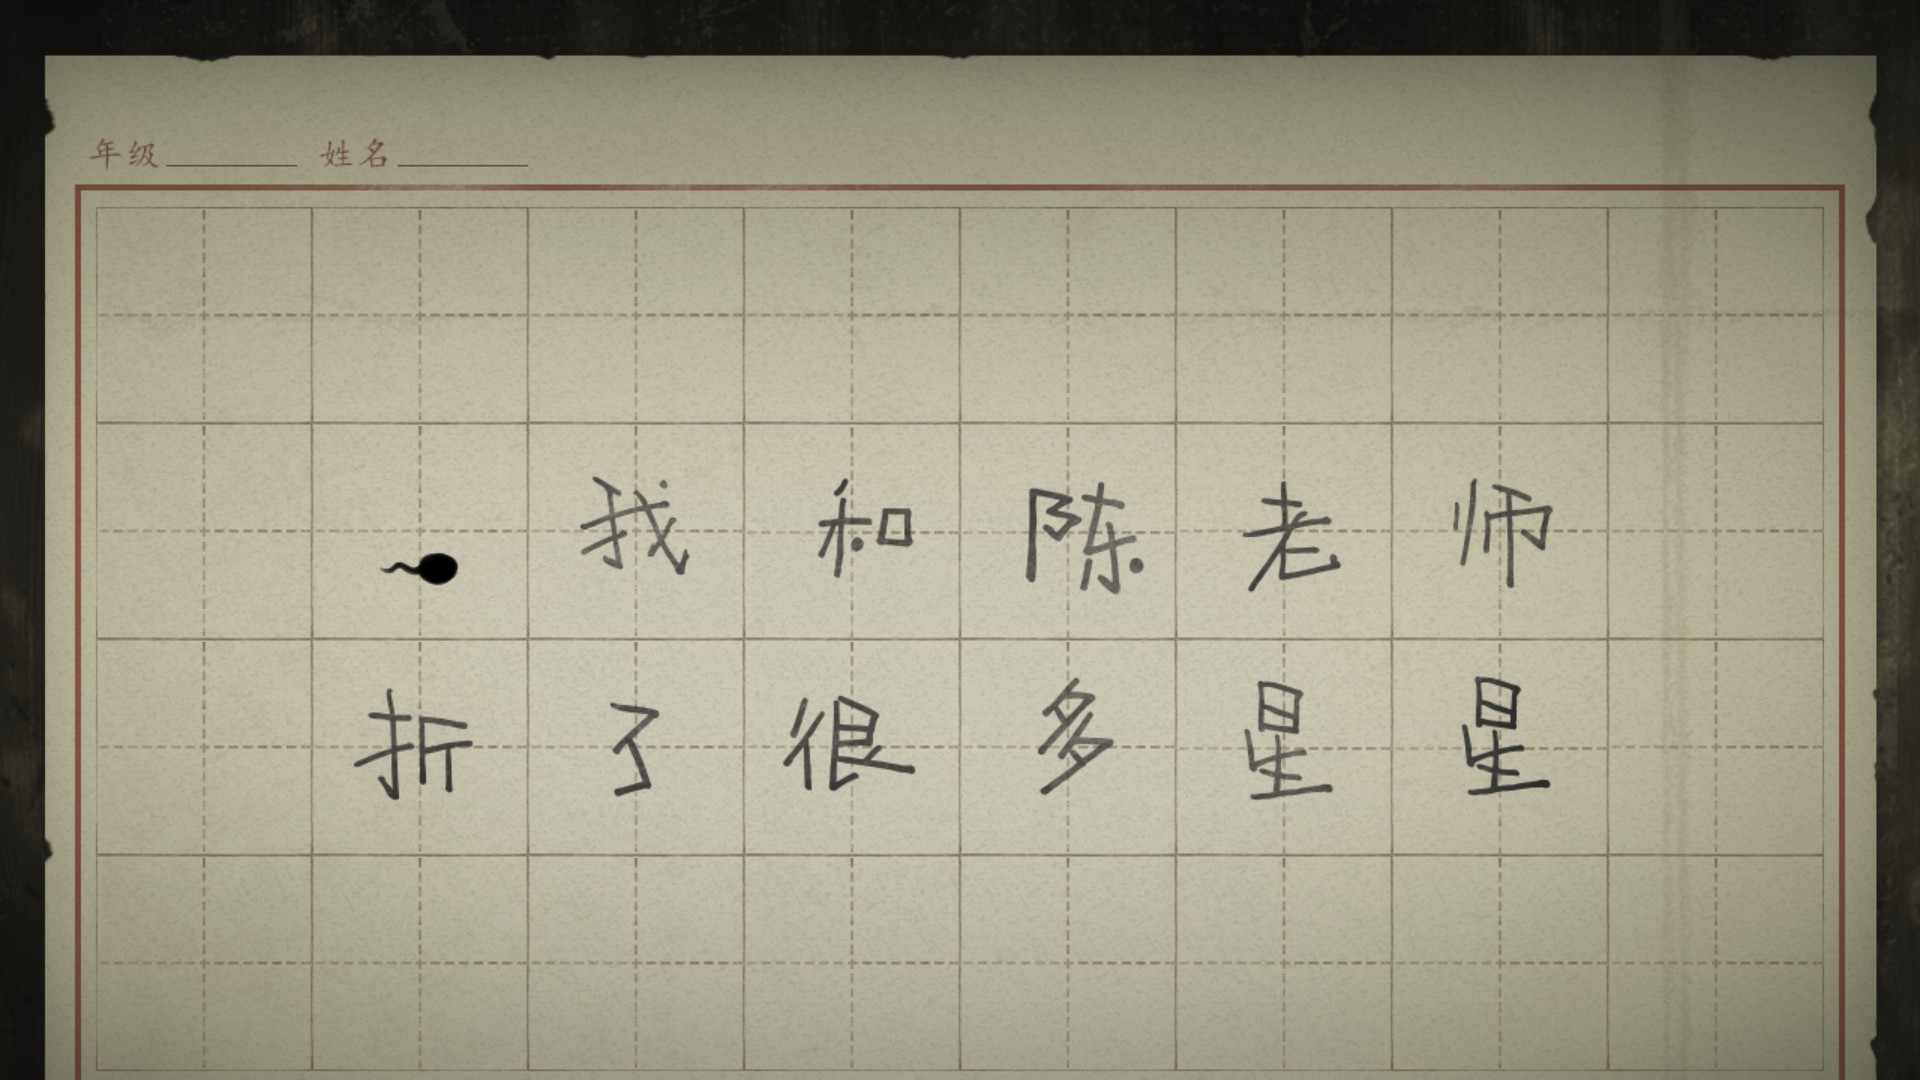 年级 姓名
我和陈老师
折了很多星星